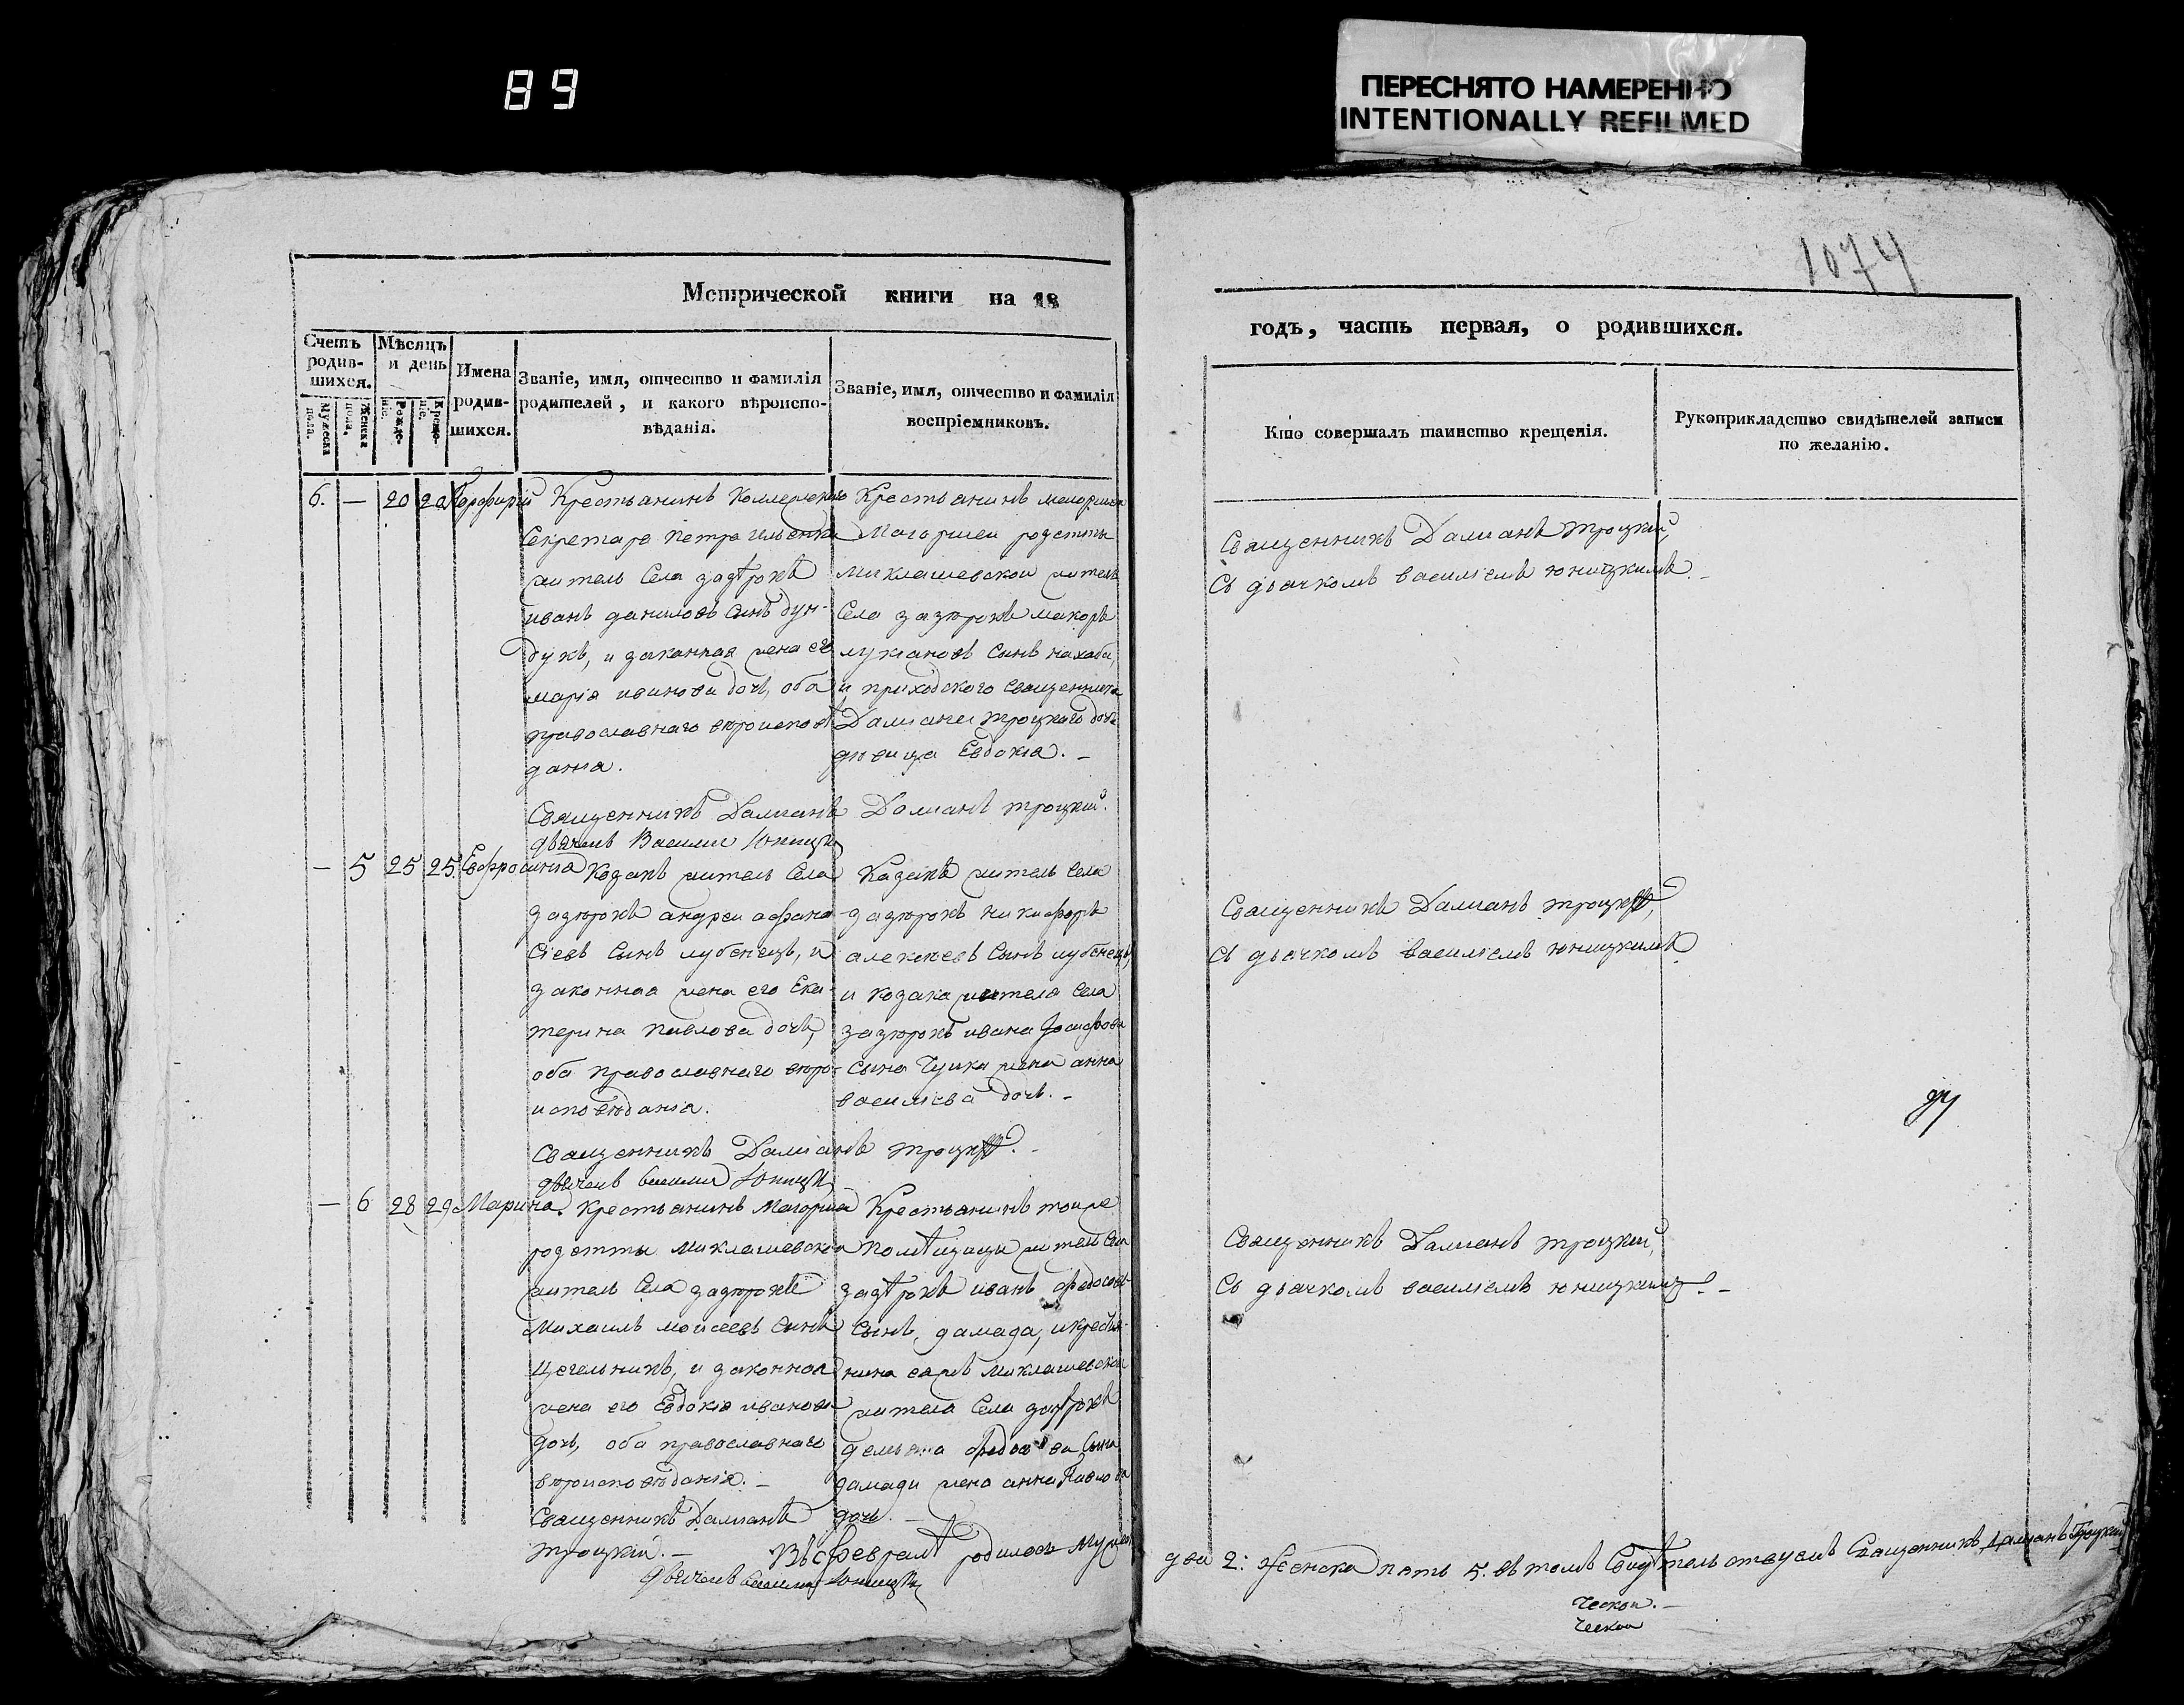 89
ПЕРЕСНЯТО НАМЕРЕННО
INTENTIONALLY REFILMED
1074
Метрической книги на 18
годъ, часть первая, о родившихся.
Счетъ родившихся.
Мужеска пола.
Женска пола.
Мѣсяцъ и день
Рождение.
Крещение.
Имена родившихся.
Званіе, имя, отчество и фамилія
родителей, и какого вѣроиспо-
вѣданія.
Званіе, имя, отчество и фамилія
воспріемниковъ.
Кто совершалъ таинство крещенія.
Рукоприкладство свидѣтелей записи
по желанію.
6. — 20 20 Порфирій
Крестьанинъ Коллежскаго
Секретара Петра Ильенка
житель Села зазѣрокъ
иванъ даниловъ Сынъ бун-
дукъ, и законная жена его
марія иванова дочь, оба
православнаго вѣроисповѣ
данія.
Священникъ Даміанъ Троцкій.
дьячекъ Василий Юницкий
Крестьанинъ
Маіорши родстпы
миклашевской житель
Села зазѣрокъ макаръ
лукіановъ Сынъ нахаба,
и приходского Священника
Даміана троцкаго дочь
дѣвица Евдокіа. –
Священникъ Даміанъ троцкій,
Съ дьячкомъ василіемъ юницкимъ. –
— 5 25 25. Евфросиніа
Козакъ житель Села
зазѣрокъ андрей афана
сіевъ Сынъ лубенецъ, и
законная жена его Ека-
терина Павлова дочь,
оба православнаго вѣро-
исповѣданіа.
Священникъ Даміанъ троцкій. –
дьячекъ василий Юницкий
Казакъ житель Села
зазѣрокъ никифоръ
алексѣевъ Сынъ лубенецъ,
и козака жителя Села
зазѣрокъ ивана
Сына жена анна
василіева дочь. –
Священникъ Даміанъ троцкій,
Съ дьячкомъ василіемъ юницкимъ.
— 6 28 29 Марина.
Крестьанинъ Маіорши
родстпы миклашевской
житель Села зазѣрокъ
Михаилъ моисеевъ Сынъ
цегельникъ, и законная
жена его Евдокія иванова
дочь, оба православнаго
вѣроисповѣданія. –
Священникъ Даміанъ
троцкій. –
дьячекъ василий Юницкий
Крестьанинъ тойже
помѣщицы житель Села
зазѣрокъ иванъ федосовъ
Сынъ, дамада, и крестья-
нина ея жъ миклашевской
жителя Села зазѣрокъ
Сына
дамади жена анна Павлова
дочь. –
Священникъ Даміанъ троцкій,
Съ дьячкомъ василіемъ юницкимъ. –
Въ февралѣ родилось мужес
два 2: женска пять 5. въ томъ Священникъ Даміанъ Троцкій
ческой. –
ческой